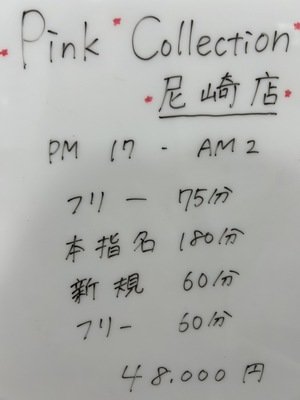 Pink Collection
尼崎店
PM 17 - AM2
フリー 75分
本指名 180分
新規 60分
フリー 60分
48.000円